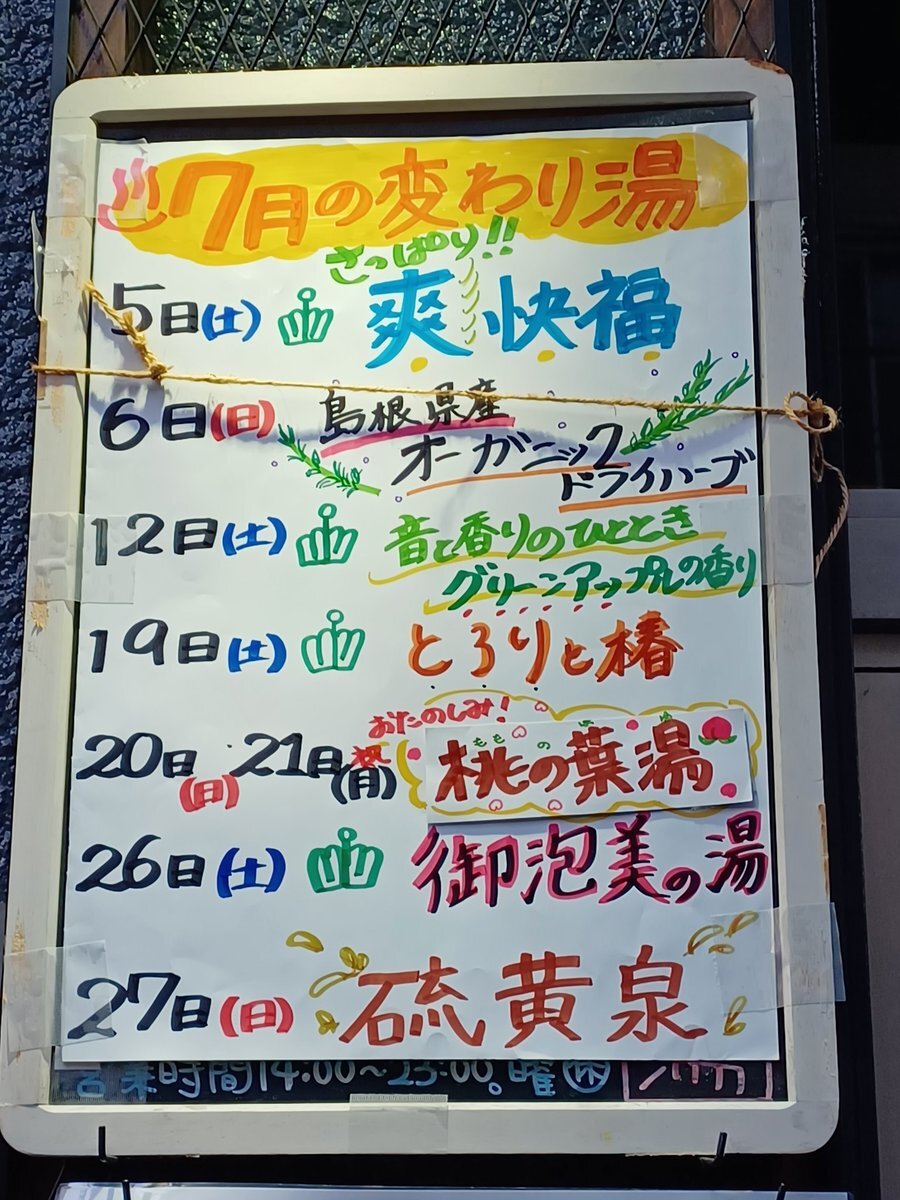 ♨7月の変わり湯
さっぱり!!
5日(土) 爽快福
6日(日) 島根県産
オーガニック
ドライハーブ
12日(土) 音と香りのひととき
グリーンアップルの香り
19日(土) とろりと椿
おたのしみ!
20日(日) 21日(月)祝 桃の葉湯
もも の は
26日(土) 御泡美の湯
27日(日) 硫黄泉
営業時間14:00~23:00。曜㊡